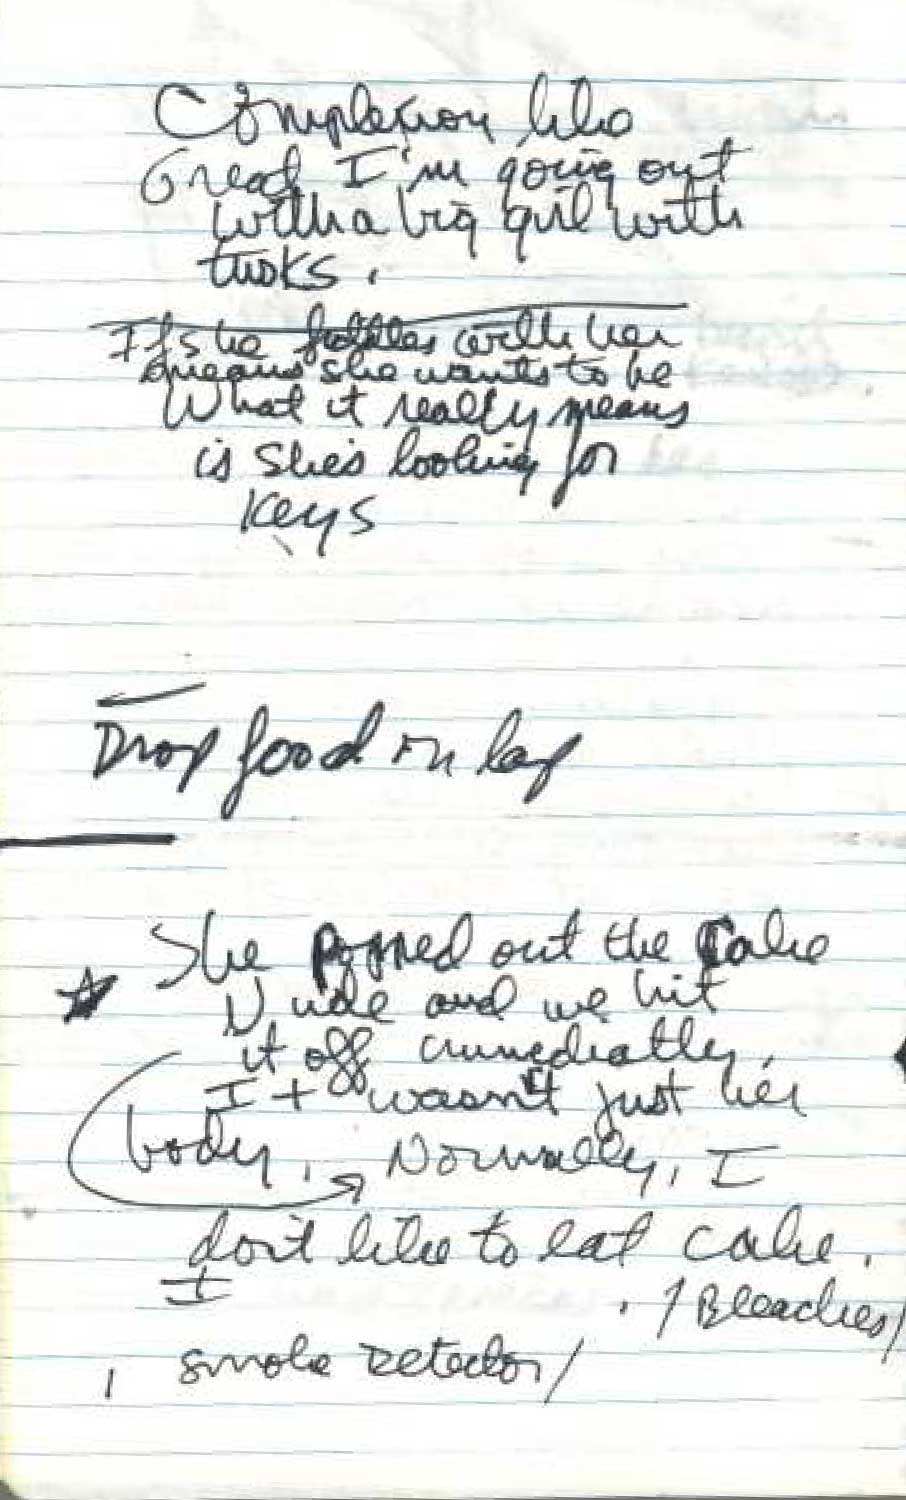 Complexion like
Great I'm going out
with a big girl with
tusks.
If she fiddles with her
means she wants to be
What it really means
is she's looking for
Keys
Drop food on lap
She popped out the Cake
Nude and we hit
it off immediatly.
It wasn't just her
body, Normally, I
don't like to eat cake.
I . / Bleaches /
, smoke detector /